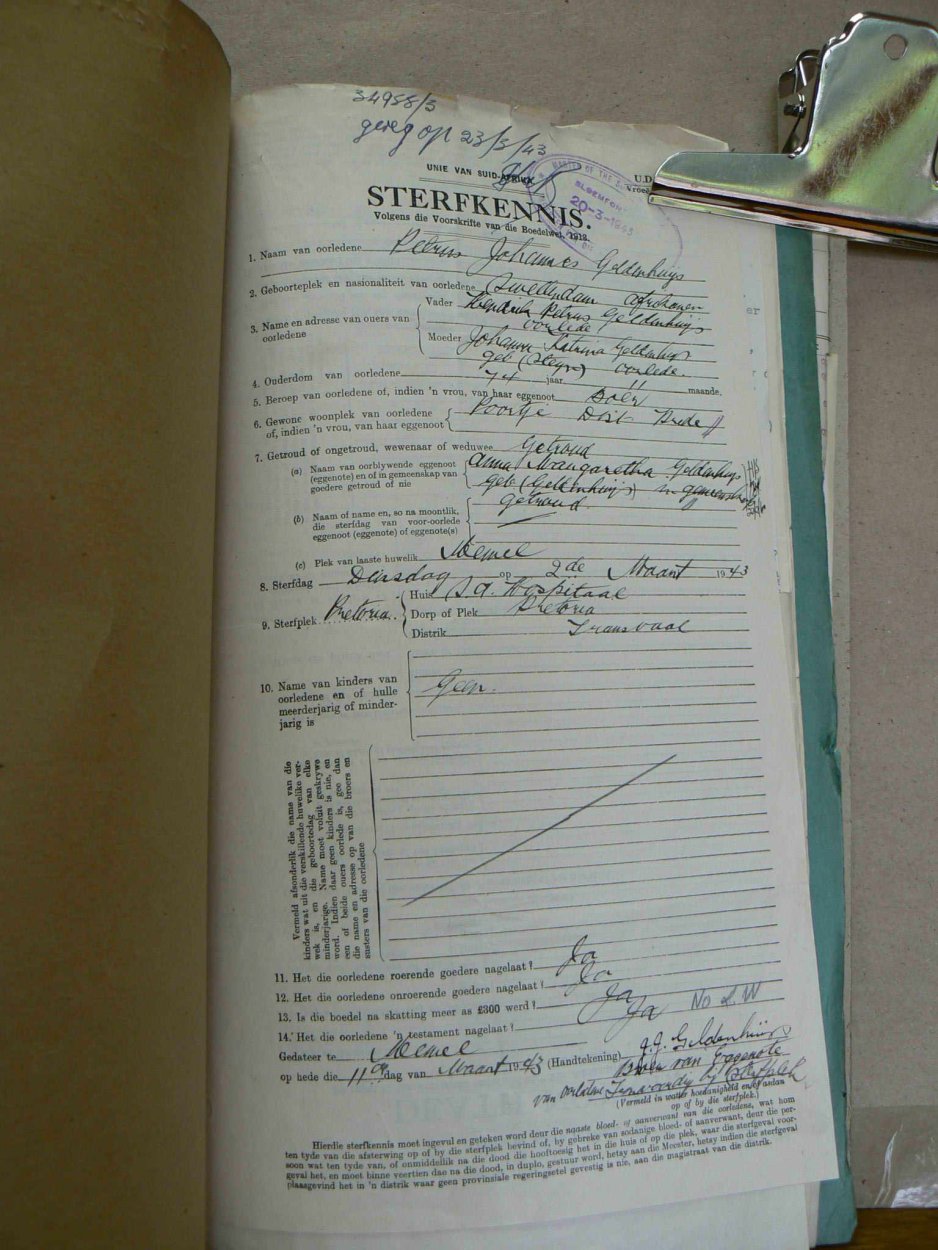 34958/3
gereg op 23/3/43
UNIE VAN SUID-AFRIKA
U.D.
MASTER OF THE
BLOEMFON
20-3-1943
STERFKENNIS.
Volgens die Voorskrifte van die Boedelwet, 1913.
1. Naam van oorledene Petrus Johannes Geldenhuys
2. Geboorteplek en nasionaliteit van oorledene Swellendam Afrikaner
3. Name en adresse van ouers van oorledene
Vader Hendrik Petrus Geldenhuys
oorlede
Moeder Johanna Katrina Geldenhuys
geb (Steyn) oorlede.
4. Ouderdom van oorledene 74 jaar 11 maande.
5. Beroep van oorledene of, indien 'n vrou, van haar eggenoot Boer
6. Gewone woonplek van oorledene of, indien 'n vrou, van haar eggenoot Poortje Dist Vrede
7. Getroud of ongetroud, wewenaar of weduwee Getroud
(a) Naam van oorblywende eggenoot (eggenote) en of in gemeenskap van goedere getroud of nie
Anna Margaretha Geldenhuys
geb (Geldenhuijs) in gemeenskap
getroud
(b) Naam of name en, so na moontlik, die sterfdag van voor-oorlede eggenoot (eggenote) of eggenote(s)
(c) Plek van laaste huwelik Memel
8. Sterfdag Dinsdag op 2de Maart 1943
9. Sterfplek Pretoria
Huis Hospitaal
Dorp of Plek Pretoria
Distrik Transvaal
10. Name van kinders van oorledene en of hulle meerderjarig of minderjarig is
Geen.
Vermeld afsonderlik die name van die
kinders wat uit die verskillende huwelike ver-
wek is, en die geboortedag van elke
minderjarige. Name moet voluit geskrywe
word. Indien daar geen kinders is nie, en
een of beide ouers oorlede is, gee dan
die name en adresse op van die broers en
susters van die oorledene
11. Het die oorledene roerende goedere nagelaat? Ja
12. Het die oorledene onroerende goedere nagelaat? Ja
13. Is die boedel na skatting meer as £300 werd? Ja
14. Het die oorledene 'n testament nagelaat? Ja
Gedateer te Memel
op hede die 11de dag van Maart 1943 (Handtekening) J.J. Geldenhuys
Broer van Eggenote
van oorledene
(Vermeld in watter hoedanigheid en of aan
op of by die sterfplek.)
Hierdie sterfkennis moet ingevul en geteken word deur die naaste bloed- of aanverwant van die oorledene, wat hom
ten tyde van die afsterwing op of by die sterfplek bevind of, by gebreke van sodanige bloed- of aanverwant, deur die per-
soon wat ten tyde van, of onmiddellik na die dood die hooftoesig het in die huis of op die plek, waar die sterfgeval voor-
geval het, en moet binne veertien dae na die dood, in duplo, gestuur word, hetsy aan die Meester, hetsy indien die sterfgeval
plaasgevind het in 'n distrik waar geen provinsiale regeringsetel gevestig is nie, aan die magistraat van die distrik.